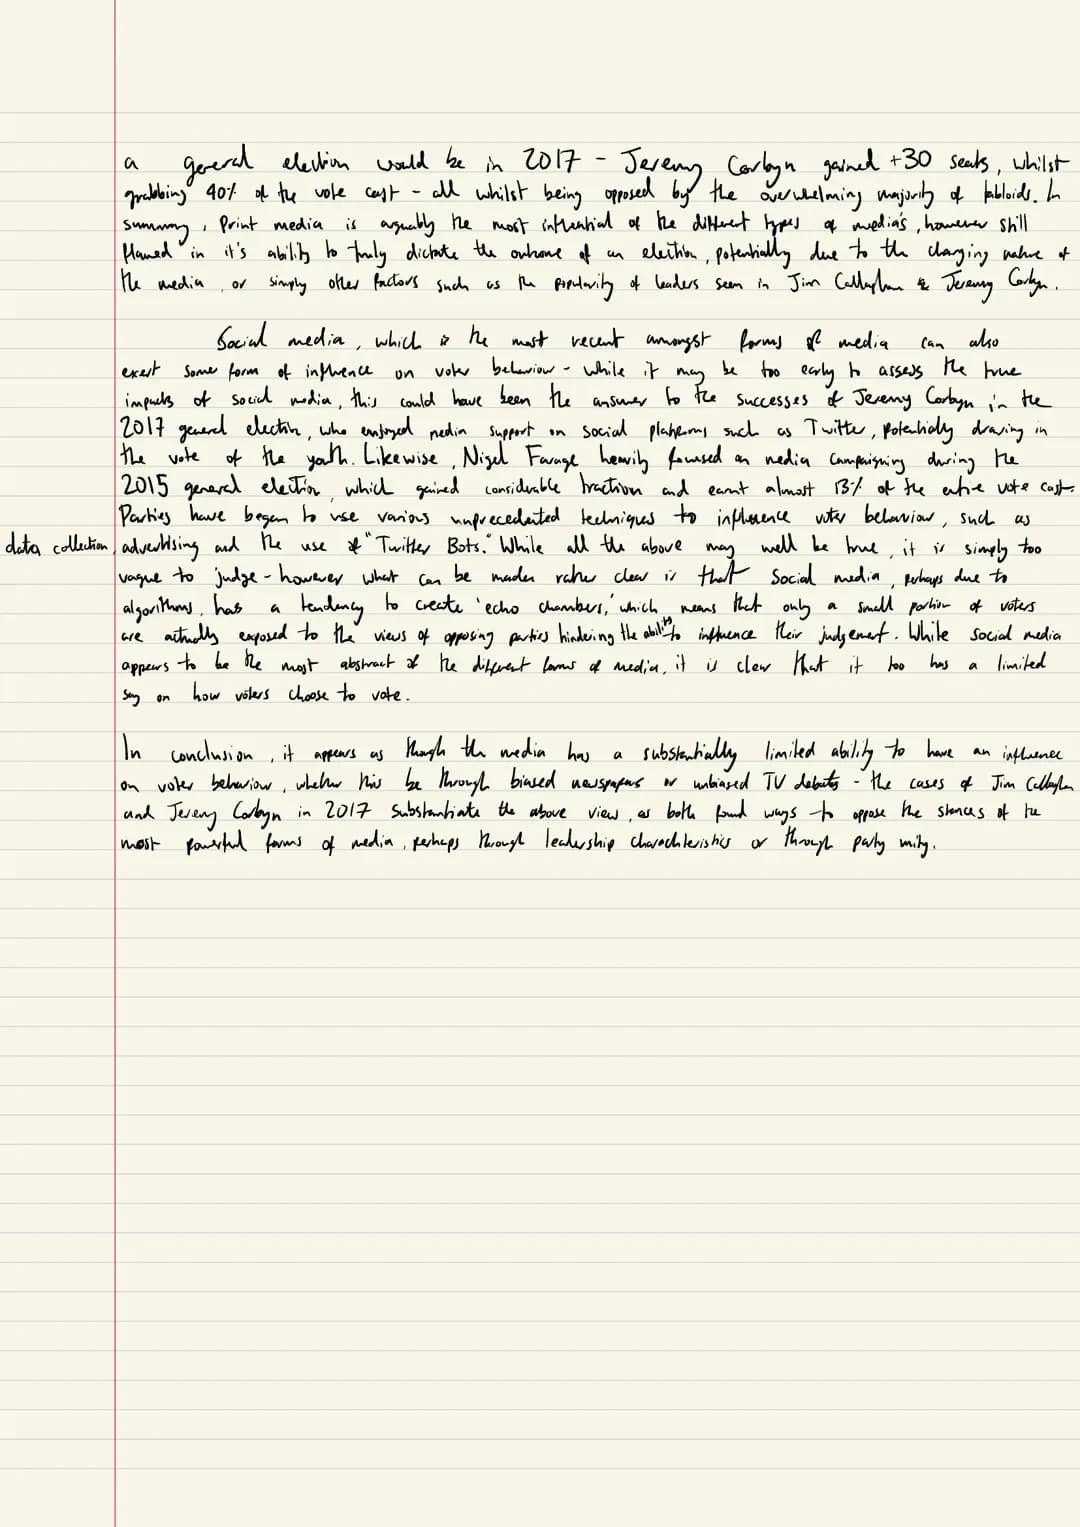 a general election would be in 2017 - Jeremy Corbyn gained +30 seats, whilst
grabbing 40% of the vote cast - all whilst being opposed by the overwhelming majority of tabloids. In
summary, Print media is arguably the most influential of the different types of media's, however still
flawed in it's ability to truly dictate the outcome of an election, potentially due to the changing nature of
the media, or simply other factors such as the popularity of leaders seen in Jim Callaghan & Jeremy Corbyn.
Social media, which is the most recent amongst forms of media can also
exert some form of influence on voter behaviour - while it may be too early to assess the true
impacts of social media, this could have been the answer to the successes of Jeremy Corbyn in the
2017 general election, who enjoyed media support on social platforms such as Twitter, potentially drawing in
the vote of the youth. Likewise, Nigel Farage heavily focused on media campaigning during the
2015 general election, which gained considerable traction and earnt almost 13% of the entire vote cast.
Parties have began to use various unprecedented techniques to influence voter behaviour, such as
data collection, advertising and the use of "Twitter Bots." While all the above may well be true, it is simply too
vague to judge - however what can be made rather clear is that Social media, perhaps due to
algorithms, has a tendency to create 'echo chambers,' which means that only a small portion of voters
are actually exposed to the views of opposing parties hindering the ability to influence their judgement. While social media
appears to be the most abstract of the different forms of media, it is clear that it too has a limited
say on how voters choose to vote.
In conclusion, it appears as though the media has a substantially limited ability to have an influence
on voter behaviour, whether this be through biased newspapers or unbiased TV debates - the cases of Jim Callaghan
and Jeremy Corbyn in 2017 substantiate the above view, as both found ways to oppose the stances of the
most powerful forms of media, perhaps through leadership charachteristics or through party unity.